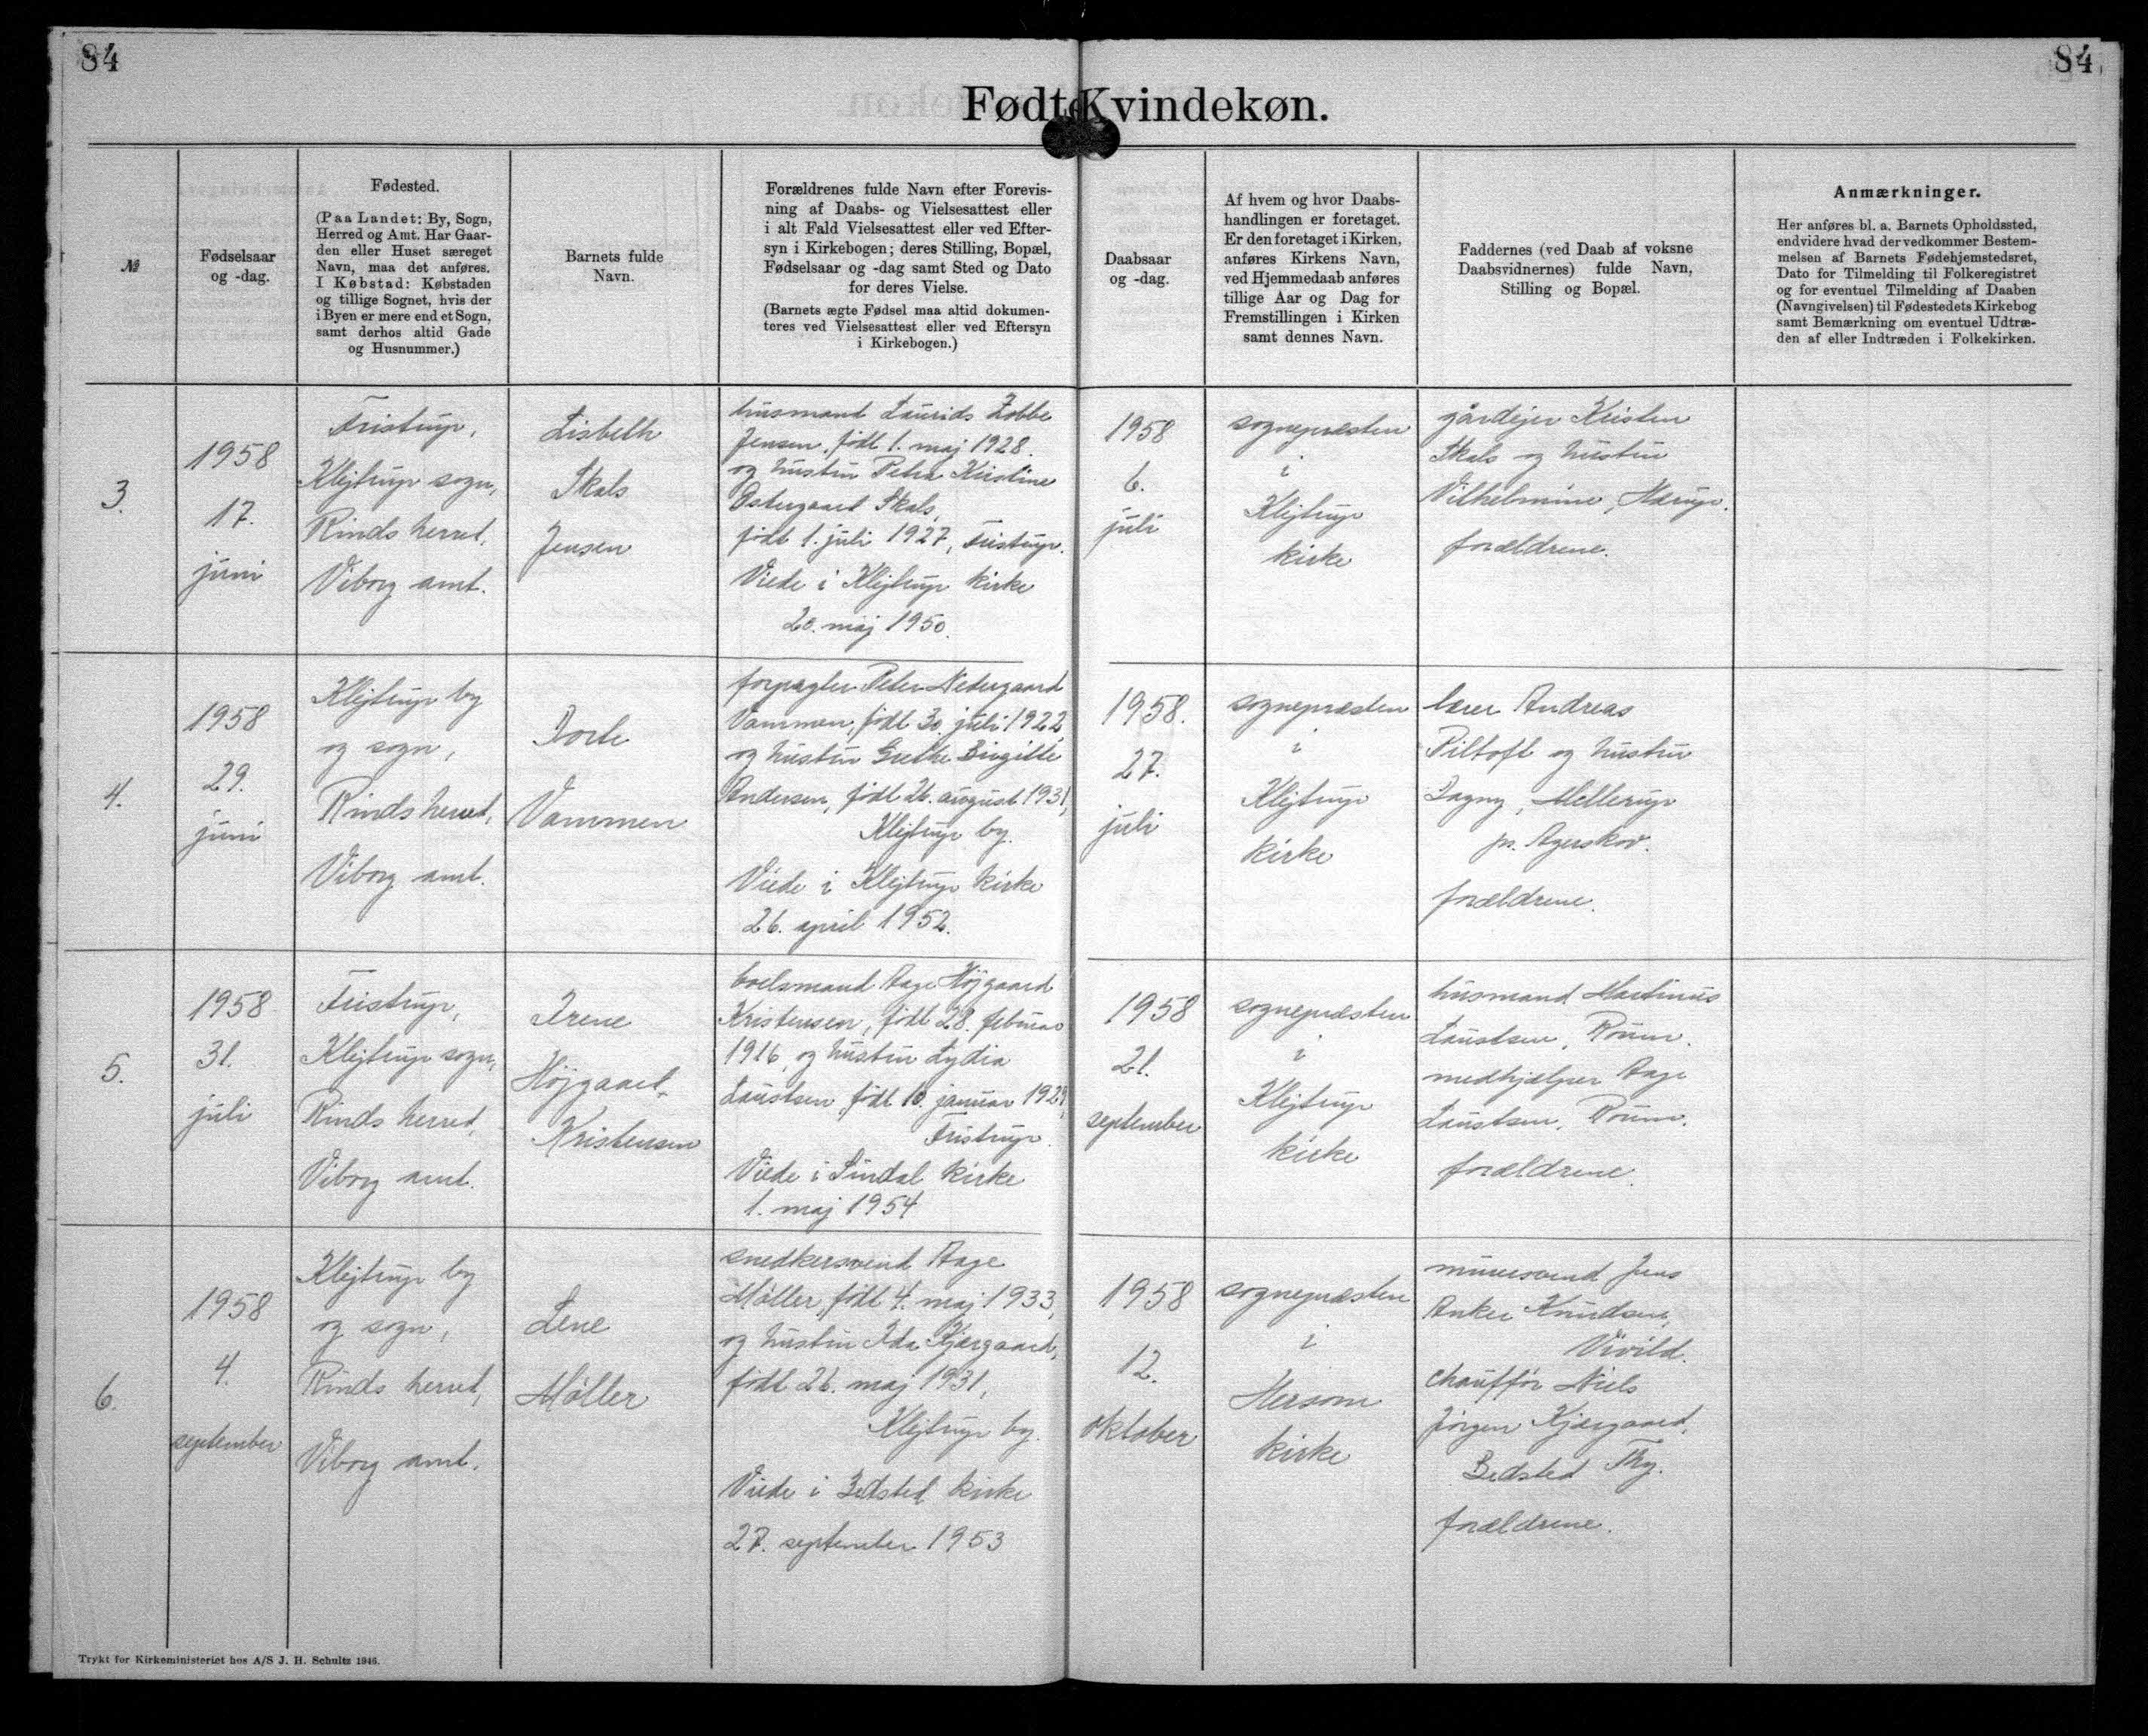 84
84
Født Kvindekøn.
№
Fødselsaar
og -dag.
Fødested.
(Paa Landet: By, Sogn,
Herred og Amt. Har Gaar-
den eller Huset særeget
Navn, maa det anføres.
I Købstad: Købstaden
og tillige Sognet, hvis der
i Byen er mere end et Sogn,
samt derhos altid Gade
og Husnummer.)
Barnets fulde
Navn.
Forældrenes fulde Navn efter Forevis-
ning af Daabs- og Vielsesattest eller
i alt Fald Vielsesattest eller ved Efter-
syn i Kirkebogen; deres Stilling, Bopæl,
Fødselsaar og -dag samt Sted og Dato
for deres Vielse.
(Barnets ægte Fødsel maa altid dokumen-
teres ved Vielsesattest eller ved Eftersyn
i Kirkebogen.)
Daabsaar
og -dag.
Af hvem og hvor Daabs-
handlingen er foretaget.
Er den foretaget i Kirken,
anføres Kirkens Navn,
ved Hjemmedaab anføres
tillige Aar og Dag for
Fremstillingen i Kirken
samt dennes Navn.
Faddernes (ved Daab af voksne
Daabsvidnernes) fulde Navn,
Stilling og Bopæl.
Anmærkninger.
Her anføres bl. a. Barnets Opholdssted,
endvidere hvad der vedkommer Bestem-
melsen af Barnets Fødehjemstedsret,
Dato for Tilmelding til Folkeregistret
og for eventuel Tilmelding af Daaben
(Navngivelsen) til Fødestedets Kirkebog
samt Bemærkning om eventuel Udtræ-
den af eller Indtræden i Folkekirken.
3.
1958
17.
juni
Fristrup,
Klejtrup sogn,
Rinds herred,
Viborg amt.
Lisbeth
Skals
Jensen
husmand Laurids Lobbe
Jensen, født 1. maj 1928.
og hustru Petra Kirstine
Østergaard Skals,
født 1. juli 1927, Fristrup.
Viede i Klejtrup kirke
20. maj 1950.
1958
6.
juli
sognepræsten
i
Klejtrup
kirke
gårdejer Kristen
Skals og hustru
Vilhelmine, Hærup.
forældrene.
4.
1958
29.
juni
Klejtrup by
og sogn,
Rinds herred,
Viborg amt.
Dorte
Vammen
forpagter Peter Nedergaard
Vammen, født 30. juli 1922,
og hustru Grethe Birgitte
Andersen, født 26. august 1931,
Klejtrup by.
Viede i Klejtrup kirke
26. april 1952.
1958.
27.
juli
sognepræsten
i
Klejtrup
kirke
lærer Andreas
Piltoft og hustru
Dagny, Mellerup
pr. Agerskov.
forældrene.
5.
1958
31.
juli
Fristrup,
Klejtrup sogn,
Rinds herred,
Viborg amt.
Irene
Højgaard
Kristensen
boelsmand Aage Højgaard
Kristensen, født 28. februar
1916, og hustru Lydia
Laustsen, født 10. januar 1929,
Fristrup.
Viede i Sindal kirke
1. maj 1954
1958
21.
september
sognepræsten
i
Klejtrup
kirke
husmand Martinus
Laustsen, Roum.
medhjælper Aage
Laustsen, Roum.
forældrene.
6.
1958
4.
september
Klejtrup by
og sogn,
Rinds herred,
Viborg amt.
Lene
Møller
snedkersvend Aage
Møller, født 4. maj 1933,
og hustru Ida Kjærgaard,
født 26. maj 1931,
Klejtrup by.
Viede i Bedsted kirke
27. september 1953
1958
12.
oktober
sognepræsten
i
Hersom
kirke
murersvend Jens
Anker Knudsen,
Vivild.
chauffør Niels
Jørgen Kjærgaard,
Bedsted Thy.
forældrene.
Trykt for Kirkeministeriet hos A/S J. H. Schultz 1946.